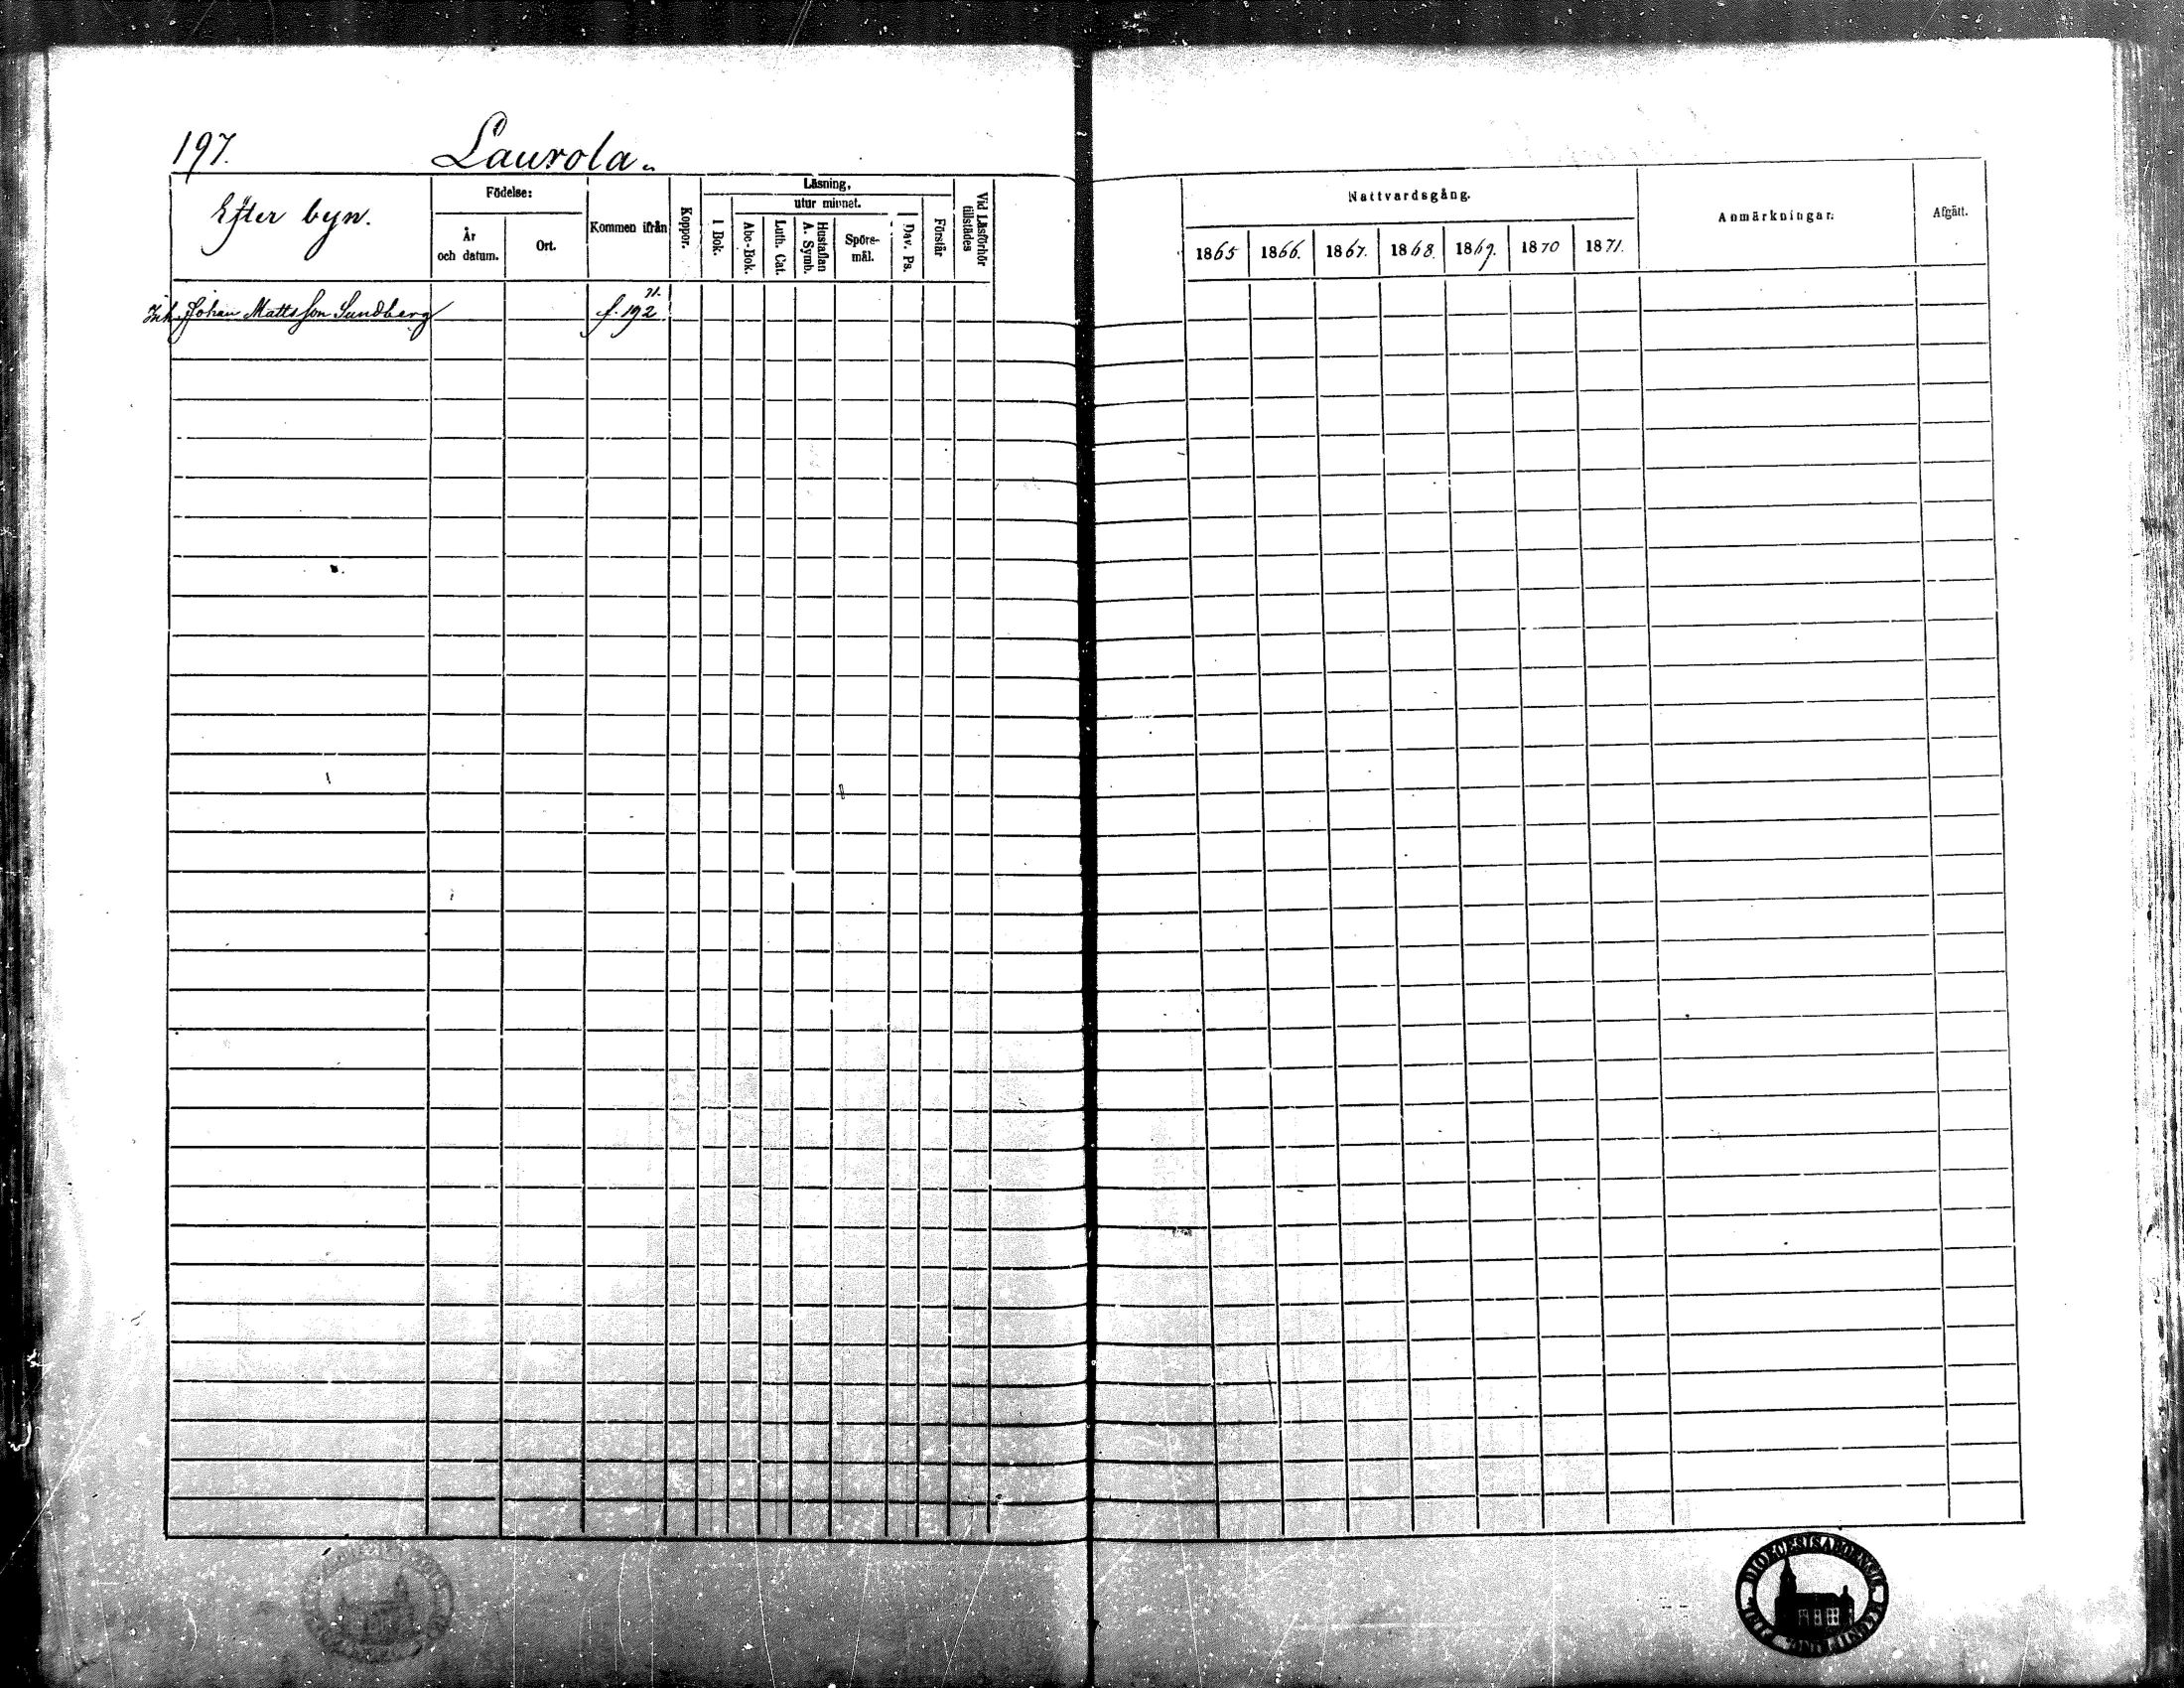 197.
Laurola.
Efter byn.
Födelse:
År
och datum.
Ort.
Kommen ifrån
Koppor.
Läsning,
I Bok.
utur minnet.
Abc-Bok.
Luth. Cat.
Hustaflan
A. Symb.
Spörs-
mål.
Dav. Ps.
Förstår
Vid Läsförhör
tillstädes
Nattvardsgång.
1865
1866.
1867.
1868.
1869.
1870
1871.
Anmärkningar.
Afgått.
Inh. Johan Mattsson Sundberg
71.
f. 192